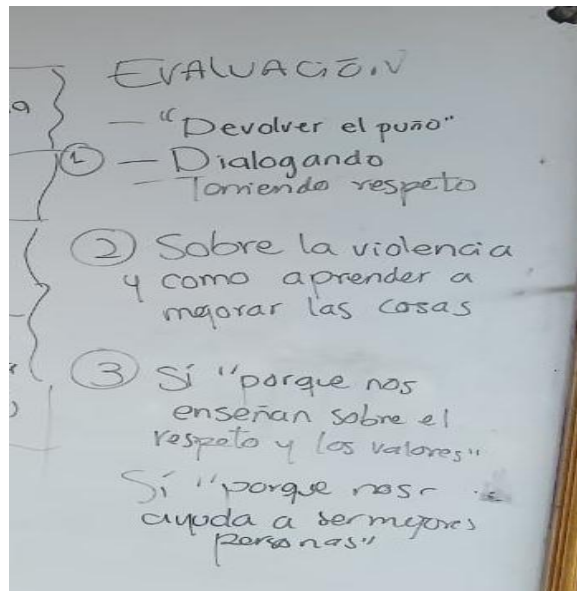 EVALUACIÓN
— "Devolver el puño"
① — Dialogando
— Tomiendo respeto
② Sobre la violencia
y como aprender a
mejorar las cosas
③ Sí "porque nos
enseñan sobre el
respeto y los valores"
Sí "porque nos
ayuda a ser mejores
personas"